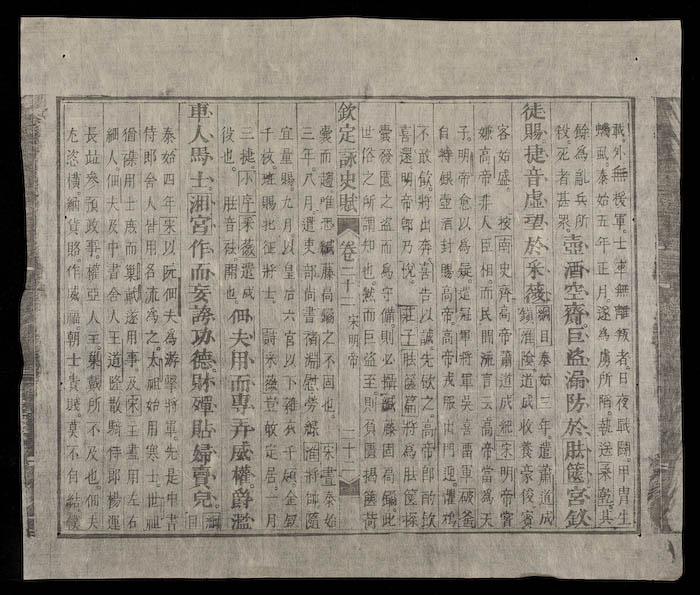 戰外無援軍。士卒無離叛者。日夜戰鬭。甲冑生
蟣虱。泰始五年正月。遂為虜所陷。執送桑乾。其
餘為亂兵所
殺。死者甚眾。壺酒空齎巨盜漏防於胠篋宮釵
徒賜捷音虛望於采薇綱目泰始三年遣蕭道成
鎮淮陰道成收養豪俊賓
客始盛。按南史齊高帝蕭道成紀宋明帝
嫌高帝非人臣相。而民間流言云高帝當為天
子。明帝愈以為疑。遣冠軍將軍吳喜留軍破釜
自持銀壺酒封賜高帝。高帝戎服出門迎。懼鴆
不敢飲。將出奔。喜告以誠先飲之。高帝即酌飲
喜還明帝即乃悅。莊子胠篋篇將為胠篋探
囊發匱之盜而為守備。則必攝緘縢固扃鐍。此
世俗之所謂知也。然而巨盜至。則負匱揭篋荷
欽定詠史賦 卷二十二 宋明帝 二十二
囊而趨唯恐緘縢扃鐍之不固也。宋書泰始
三年八月。遣吏部尚書褚淵慰勞緣淮將帥隨
宜量賜。九月以皇后六宮以下雜衣千領金釵
千枚班賜北征將士。詩采薇豈敢定居一月
三捷小序采薇遣戍
役也。胠音祛開也。佃夫用而專弄威權爵濫
車人馬士湘宮作而妄誇功德財殫貼婦賣兒綱目
泰始四年宋以阮佃夫為游擊將軍。先是中書
侍郎舍人皆用名流為之。太祖始用寒士世祖
猶雜用士庶而巢戴遂用事及宋主盡用左右
細人佃夫及中書舍人王道隆散騎侍郎楊運
長並參預政事。權亞人主。巢戴所不及也佃夫
尤恣橫。納貨賂。作威福。朝士貴賤。莫不自結僕